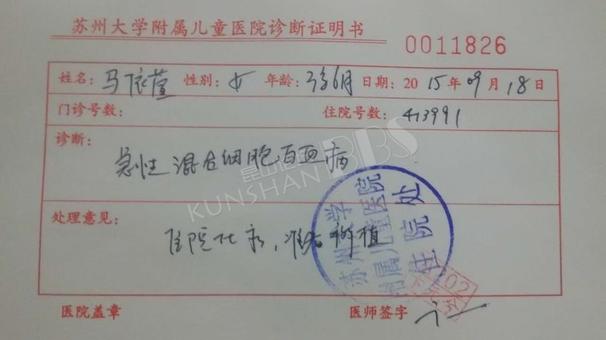 苏州大学附属儿童医院诊断证明书
0011826
姓名: 马依萱 性别: 女 年龄: 3岁6月 日期: 2015年09月18日
门诊号数: 住院号数: 413991
诊断:
急性混合细胞白血病
昆山论坛BBS
KUNSHAN
处理意见:
住院化疗,准备移植
苏州大学
附属儿童医院
住院处
医院盖章 医师签字